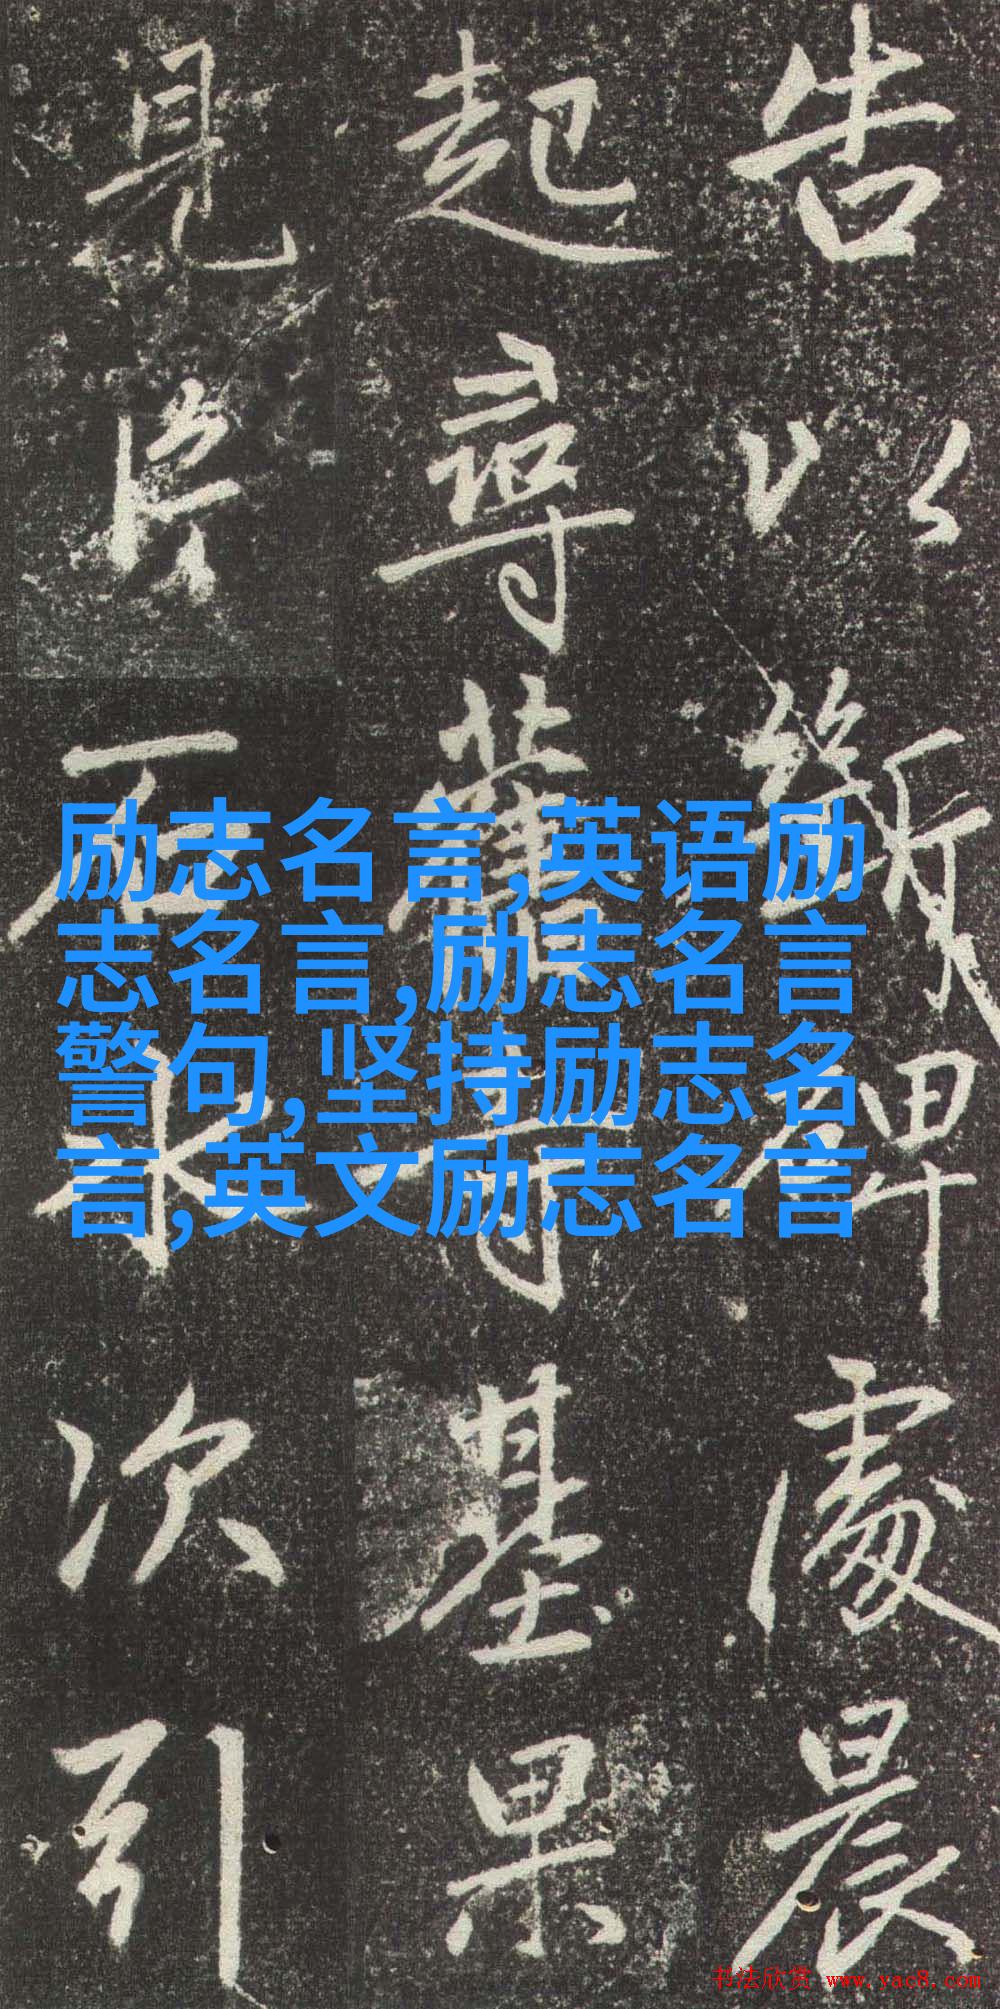 告以碑處晨
起尋舊寺基果
見片石次引
励志名言,英语励
志名言,励志名言
警句,坚持励志名
言,英文励志名言
书法欣赏 www.yac8.com